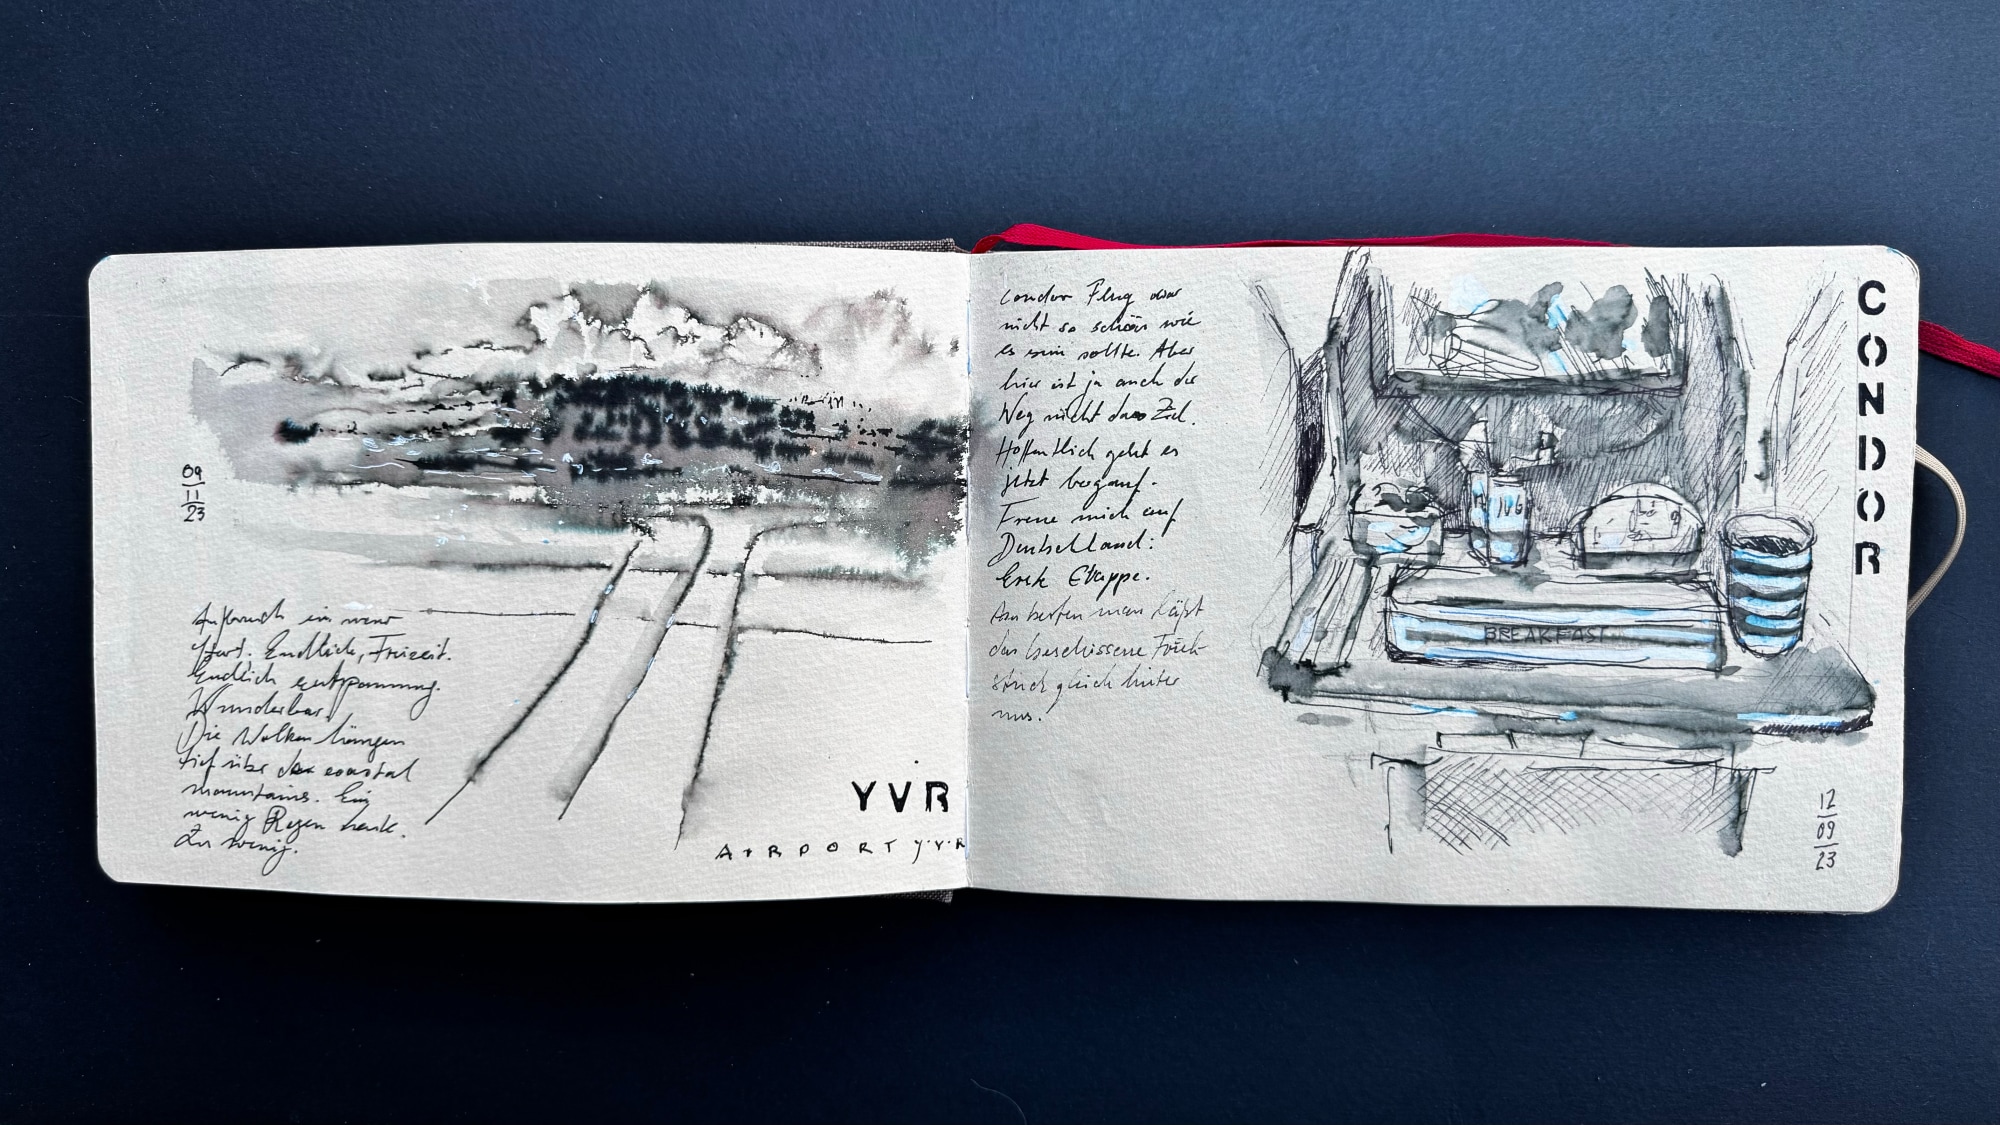 09
11
23
Aufbruch in
Endlich, Freizeit.
Endlich entspannung.
Wunderbar.
Die Wolken hängen
tief über der coastal
mountains. Ein
wenig Regen heute.
Zu wenig.
YVR
AIRPORT Y.V.R
Condor Flug war
nicht so schön wie
es sein sollte. Aber
hier ist ja auch der
Weg nicht das Ziel.
Hoffentlich geht es
jetzt bergauf.
Freue mich auf
Deutschland:
Erste Etappe.
Am besten man läßt
das beschissene Früh-
stück gleich hinter
uns.
BREAKFAST
CONDOR
12
09
23